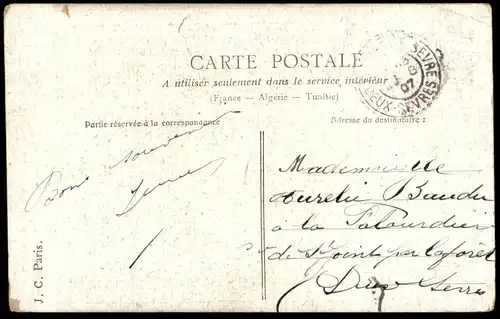 CARTE POSTALE
A utiliser seulement dans le service intérieur
(France — Algérie — Tunisie)
Partie réservée à la correspondance
Adresse du destinataire :
SEVRES
07
DEUX-SEVRES
Bons souvenirs
J. C. Paris.
Mademoiselle
Aurelie
à la
de St Joint par Laforêt
Deux Sevres